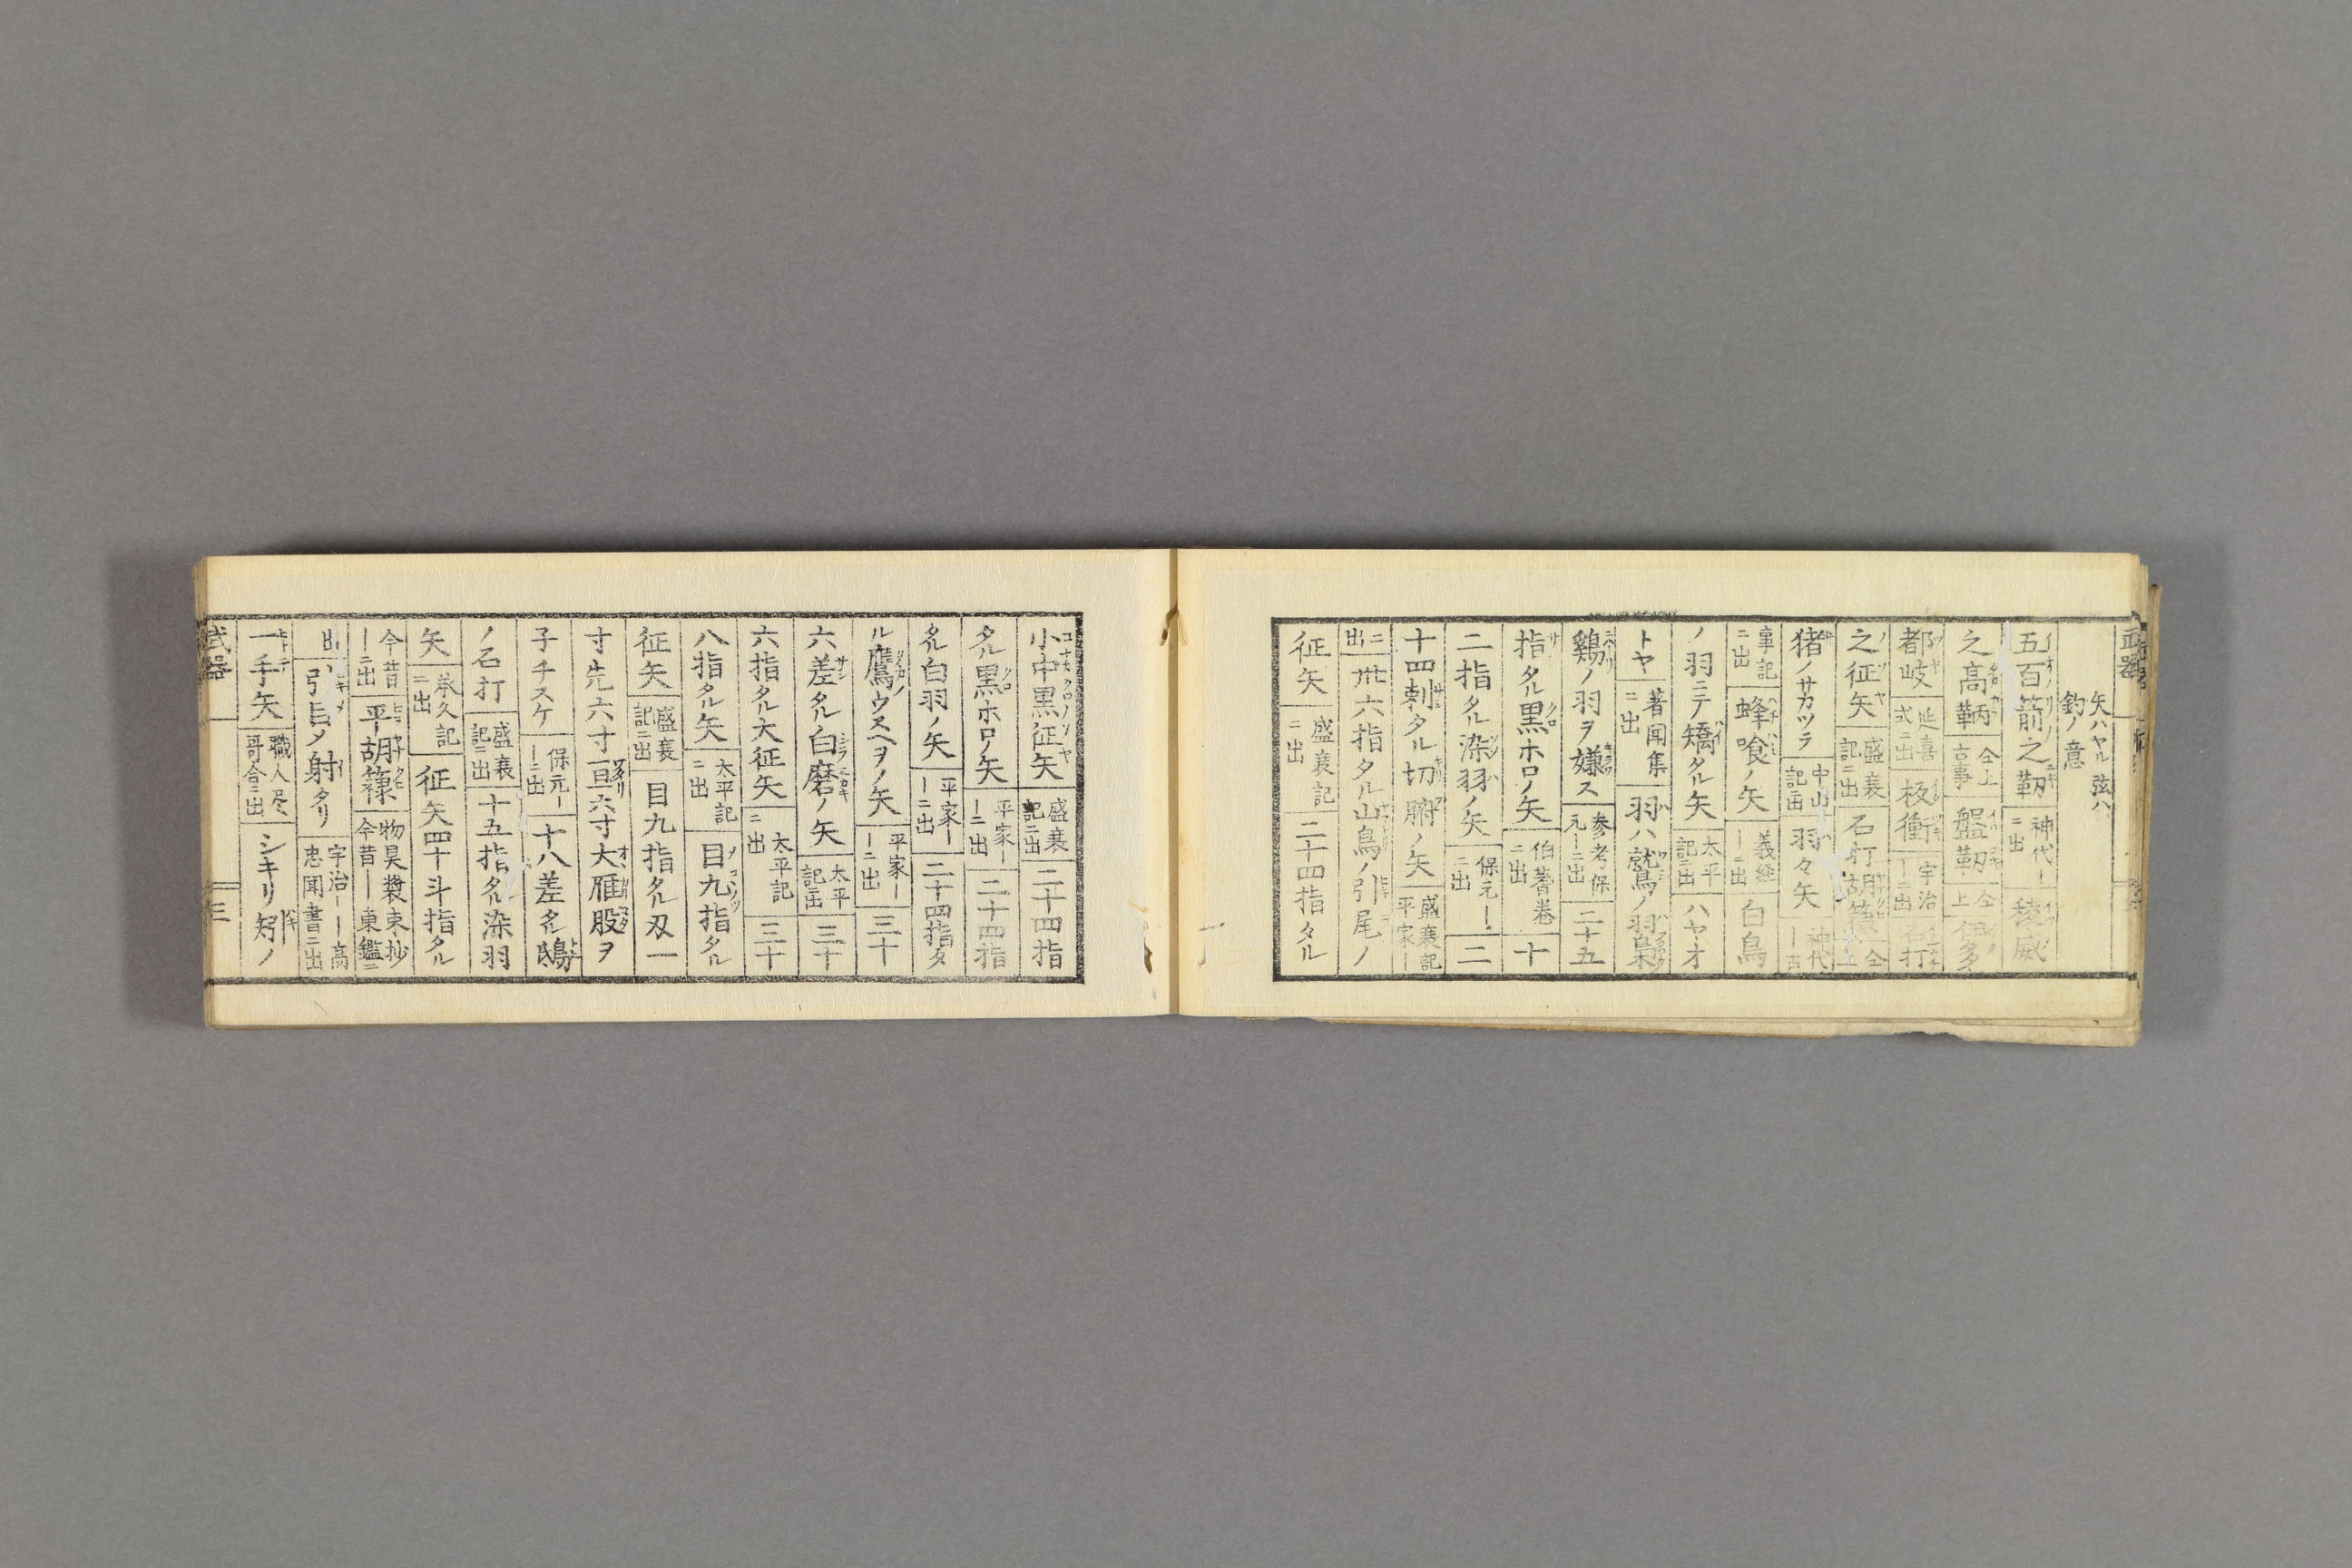 矢ハヤル弦ハ
釣ノ意
五百箭之靫 神代ーニ出 稜威
之高鞆 仝上古事 盤靫 仝上 伊多
都岐 延喜式ニ出 板衝 宇治ーニ出 石打
之征矢 盛衰記ニ出 石打胡籙 仝上
猪ノサカツラ 中山記出 羽々矢 神代ー古
事記ニ出 蜂喰ノ矢 義経ーニ出 白鳥
ノ羽ニテ矯タル矢 太平記ニ出 ハヤオ
トヤ 著聞集ニ出 羽ハ鷲ノ羽梟
鷄ノ羽ヲ嫌ス 参考保元ーニ出 二十五
指タル黒ホロノ矢 伯耆巻ニ出 十
二指タル染羽ノ矢 保元ーニ出 二
十四刺タル切腑ノ矢 盛衰記平家ー
ニ出 卅六指タル山鳥ノ引尾ノ
征矢 盛衰記ニ出 二十四指タル
小中黒征矢 盛衰記ニ出 二十四指
タル黒ホロノ矢 平家ーニ出 二十四指
タル白羽ノ矢 平家ーニ出 二十四指タ
ル鷹ウスヘヲノ矢 平家ーニ出 三十
六差タル白磨ノ矢 太平記ニ出 三十
六指タル大征矢 太平記ニ出 三十
八指タル矢 太平記ニ出 目九指タル
征矢 盛衰記ニ出 目九指タル刄一
寸先六寸亘六寸大雁股ヲ
子チスケ 保元ーニ出 十八差タル鴇
ノ石打 盛衰記ニ出 十五指タル染羽
矢 承久記ニ出 征矢四十斗指タル
今昔ーニ出 平胡籙 物具装束抄今昔ー東鑑ニ
出 引目タ射タリ 宇治ー高忠聞書ニ出
一手矢 職人尽哥合ニ出 シキリ矧ノ
武器 三